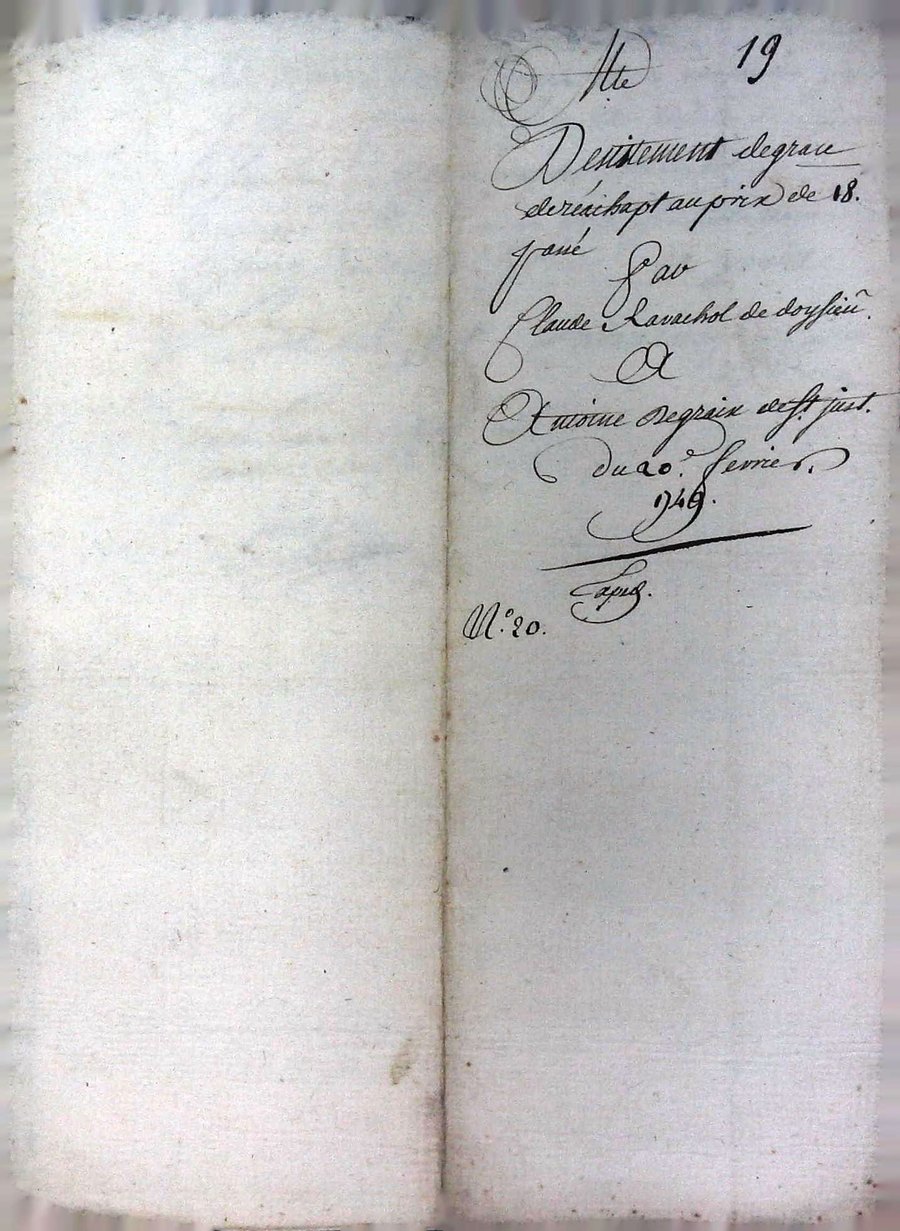 19
Desistement de grace
de reachapt au prix de 18.
passé
Par
Claude Ravachol de doysieu
A
Antoine Degraix de St. just.
du 20e. fevrier
1749.
N.o 20.